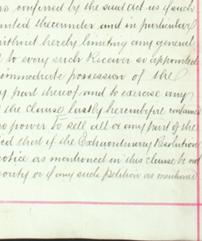 as conferred by the said Act as if such
thereunder and in particular
without hereby limiting any general
to every such Receiver so appointed
immediate possession of the
part thereof and to exercise any
the clause lastly hereinbefore contained
power to sell all or any part of the
that if the Extraordinary Resolution
notice as mentioned in this clause be not
or if any such petition as mentioned